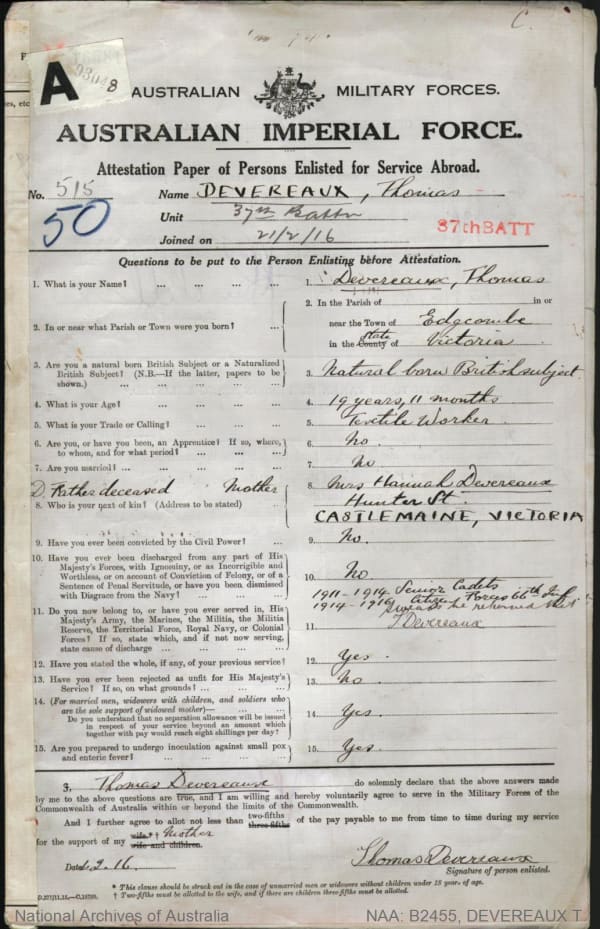 C.
A
93048
AUSTRALIAN MILITARY FORCES.
AUSTRALIAN IMPERIAL FORCE.
Attestation Paper of Persons Enlisted for Service Abroad.
No. 515 Name DEVEREAUX, Thomas
50 Unit 37th Battn
Joined on 21/2/16 37thBATT
Questions to be put to the Person Enlisting before Attestation.
1. What is your Name? ... ... ... ... 1. Devereaux, Thomas
2. In or near what Parish or Town were you born? ... 2. In the Parish of in or
near the Town of Edgcombe
in the County of State Victoria
3. Are you a natural born British Subject or a Naturalized British Subject? (N.B.—If the latter, papers to be shown.) ... ... ... ... 3. Natural born British subject
4. What is your Age? ... ... ... ... 4. 19 years, 11 months
5. What is your Trade or Calling? ... ... ... 5. Textile Worker
6. Are you, or have you been, an Apprentice? If so, where, to whom, and for what period? ... ... ... 6. No.
7. Are you married? ... ... ... ... 7. No
D. Father deceased Mother
8. Who is your next of kin? (Address to be stated) .. 8. Mrs Hannah Devereaux
Hunter St
CASTLEMAINE, VICTORIA
9. Have you ever been convicted by the Civil Power? ... 9. No.
10. Have you ever been discharged from any part of His Majesty's Forces, with Ignominy, or as Incorrigible and Worthless, or on account of Conviction of Felony, or of a Sentence of Penal Servitude, or have you been dismissed with Disgrace from the Navy? ... ... ... 10. No
1911-1914 Senior Cadets
1914-1916 Citizen Forces 66th Inf
11. Do you now belong to, or have you ever served in, His Majesty's Army, the Marines, the Militia, the Militia Reserve, the Territorial Force, Royal Navy, or Colonial Forces? If so, state which, and if not now serving, state cause of discharge ... ... ... 11. TDevereaux
12. Have you stated the whole, if any, of your previous service? 12. Yes.
13. Have you ever been rejected as unfit for His Majesty's Service? If so, on what grounds? ... ... ... 13. No.
14. (For married men, widowers with children, and soldiers who are the sole support of widowed mother)—
Do you understand that no separation allowance will be issued in respect of your service beyond an amount which together with pay would reach eight shillings per day? 14. Yes.
15. Are you prepared to undergo inoculation against small pox and enteric fever? ... ... ... ... 15. Yes.
I, Thomas Devereaux do solemnly declare that the above answers made
by me to the above questions are true, and I am willing and hereby voluntarily agree to serve in the Military Forces of the
Commonwealth of Australia within or beyond the limits of the Commonwealth.
And I further agree to allot not less than two-fifths three-fifths of the pay payable to me from time to time during my service
for the support of my wife*† Mother
wife and children.
Date .2.16. Thomas Devereaux
Signature of person enlisted.
* This clause should be struck out in the case of unmarried men or widowers without children under 18 years of age.
† Two-fifths must be allotted to the wife, and if there are children three-fifths must be allotted.
National Archives of Australia NAA: B2455, DEVEREAUX T